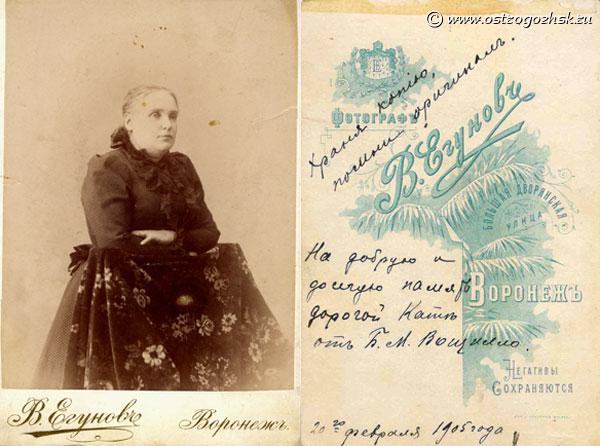 © www.ostrogozhsk.su
В. Егуновъ Воронежъ.
Храня копію,
помни оригиналъ.
Фотографъ
В. Егуновъ
Большая Дворянская
улица
Воронежъ
На добрую и
долгую память
дорогой Катѣ
отъ Б. М.
Негативы
Сохраняются
20го февраля 1905 года